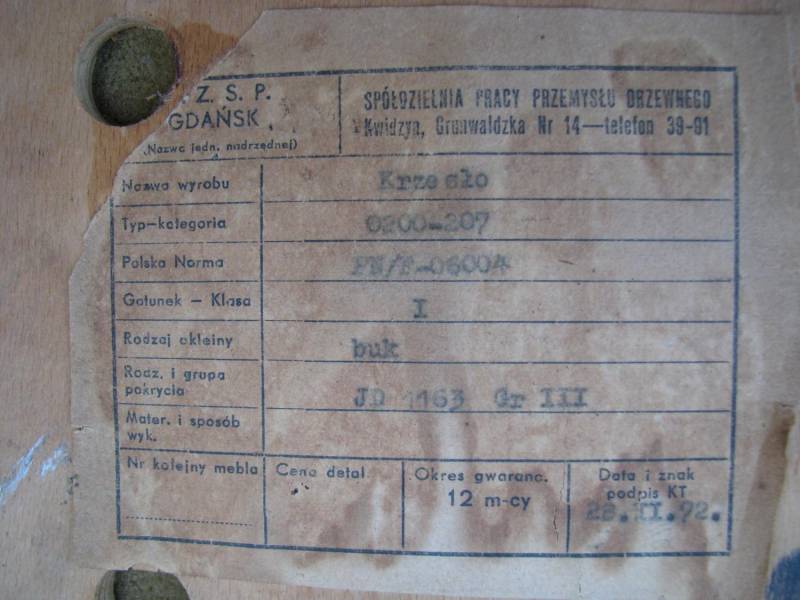 Z. S. P.
GDAŃSK
(Nazwa jedn. nadrzędnej)
SPÓŁDZIELNIA PRACY PRZEMYSŁU DRZEWNEGO
Kwidzyn, Grunwaldzka Nr 14—telefon 39-91
Nazwa wyrobu Krzesło
Typ—kategoria 0200-207
Polska Norma PN/F-06004
Gatunek — Klasa I
Rodzaj okleiny buk
Rodz. i grupa
pokrycia JD 1163 Gr III
Mater. i sposób
wyk.
Nr kolejny mebla
Cena detal.
Okres gwaranc.
12 m-cy
Data i znak
podpis KT